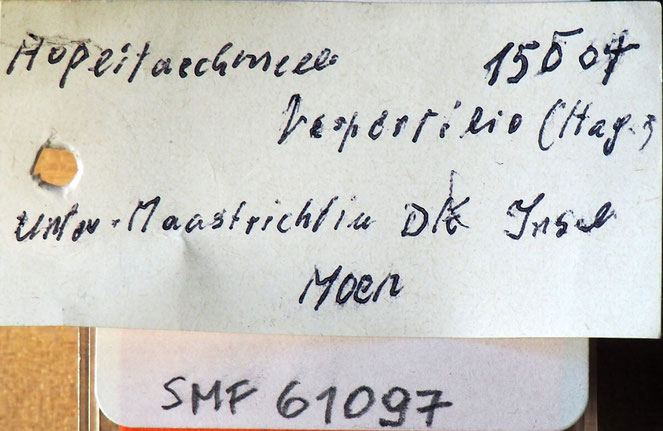 Hoplitaechmella 15507
Vespertilio (Hag.)
Unter-Maastrichtin DK Insel
Moen
SMF 61097